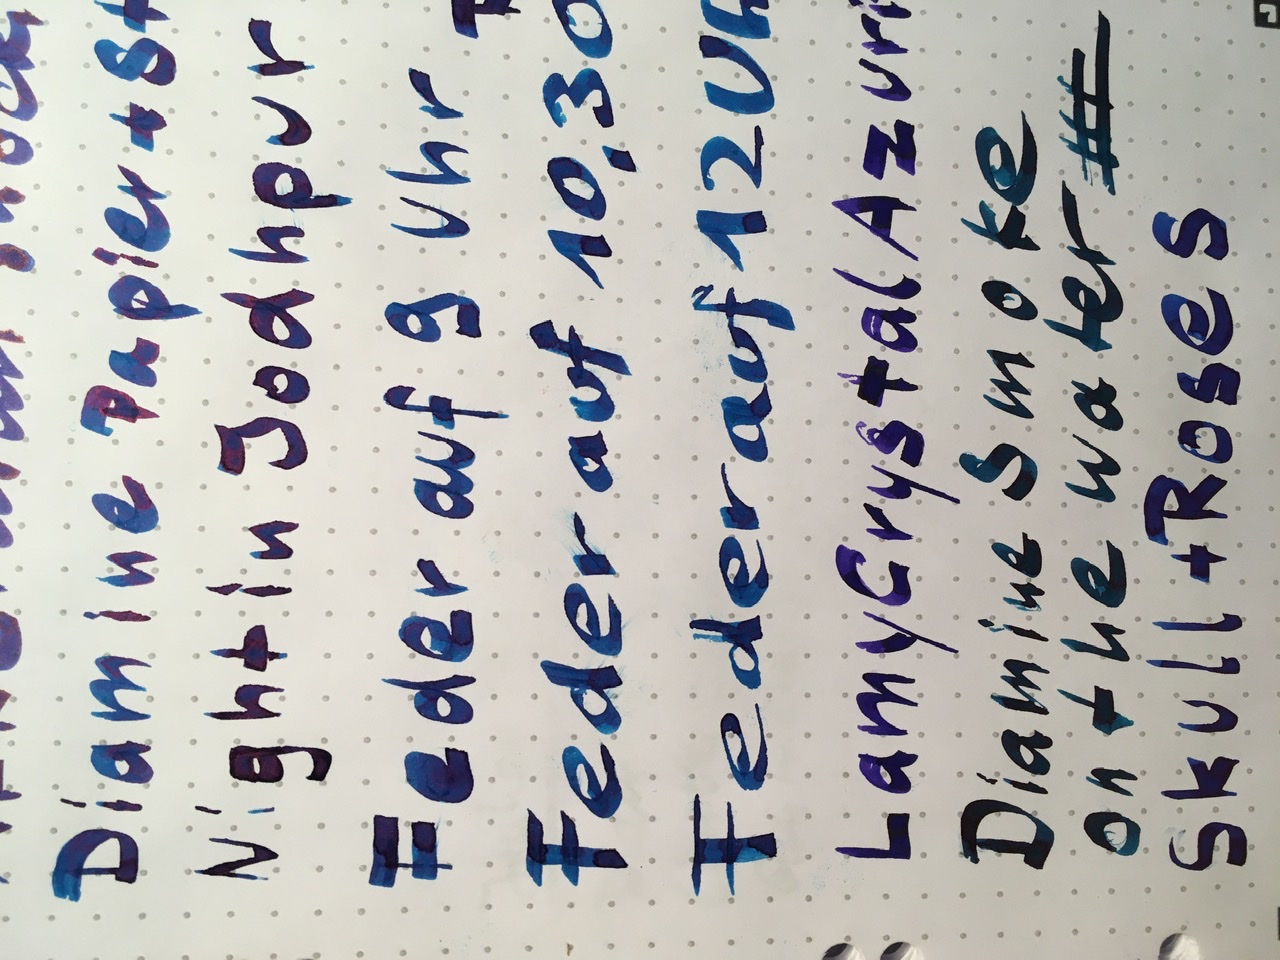 Diamine Papier + St
Night in Jodhpur
Feder auf 9 Uhr
Feder auf 10,30
Feder auf 12 Uh
Lamy Crystal Azuri
Diamine Smoke
on the water #
Skull + Roses